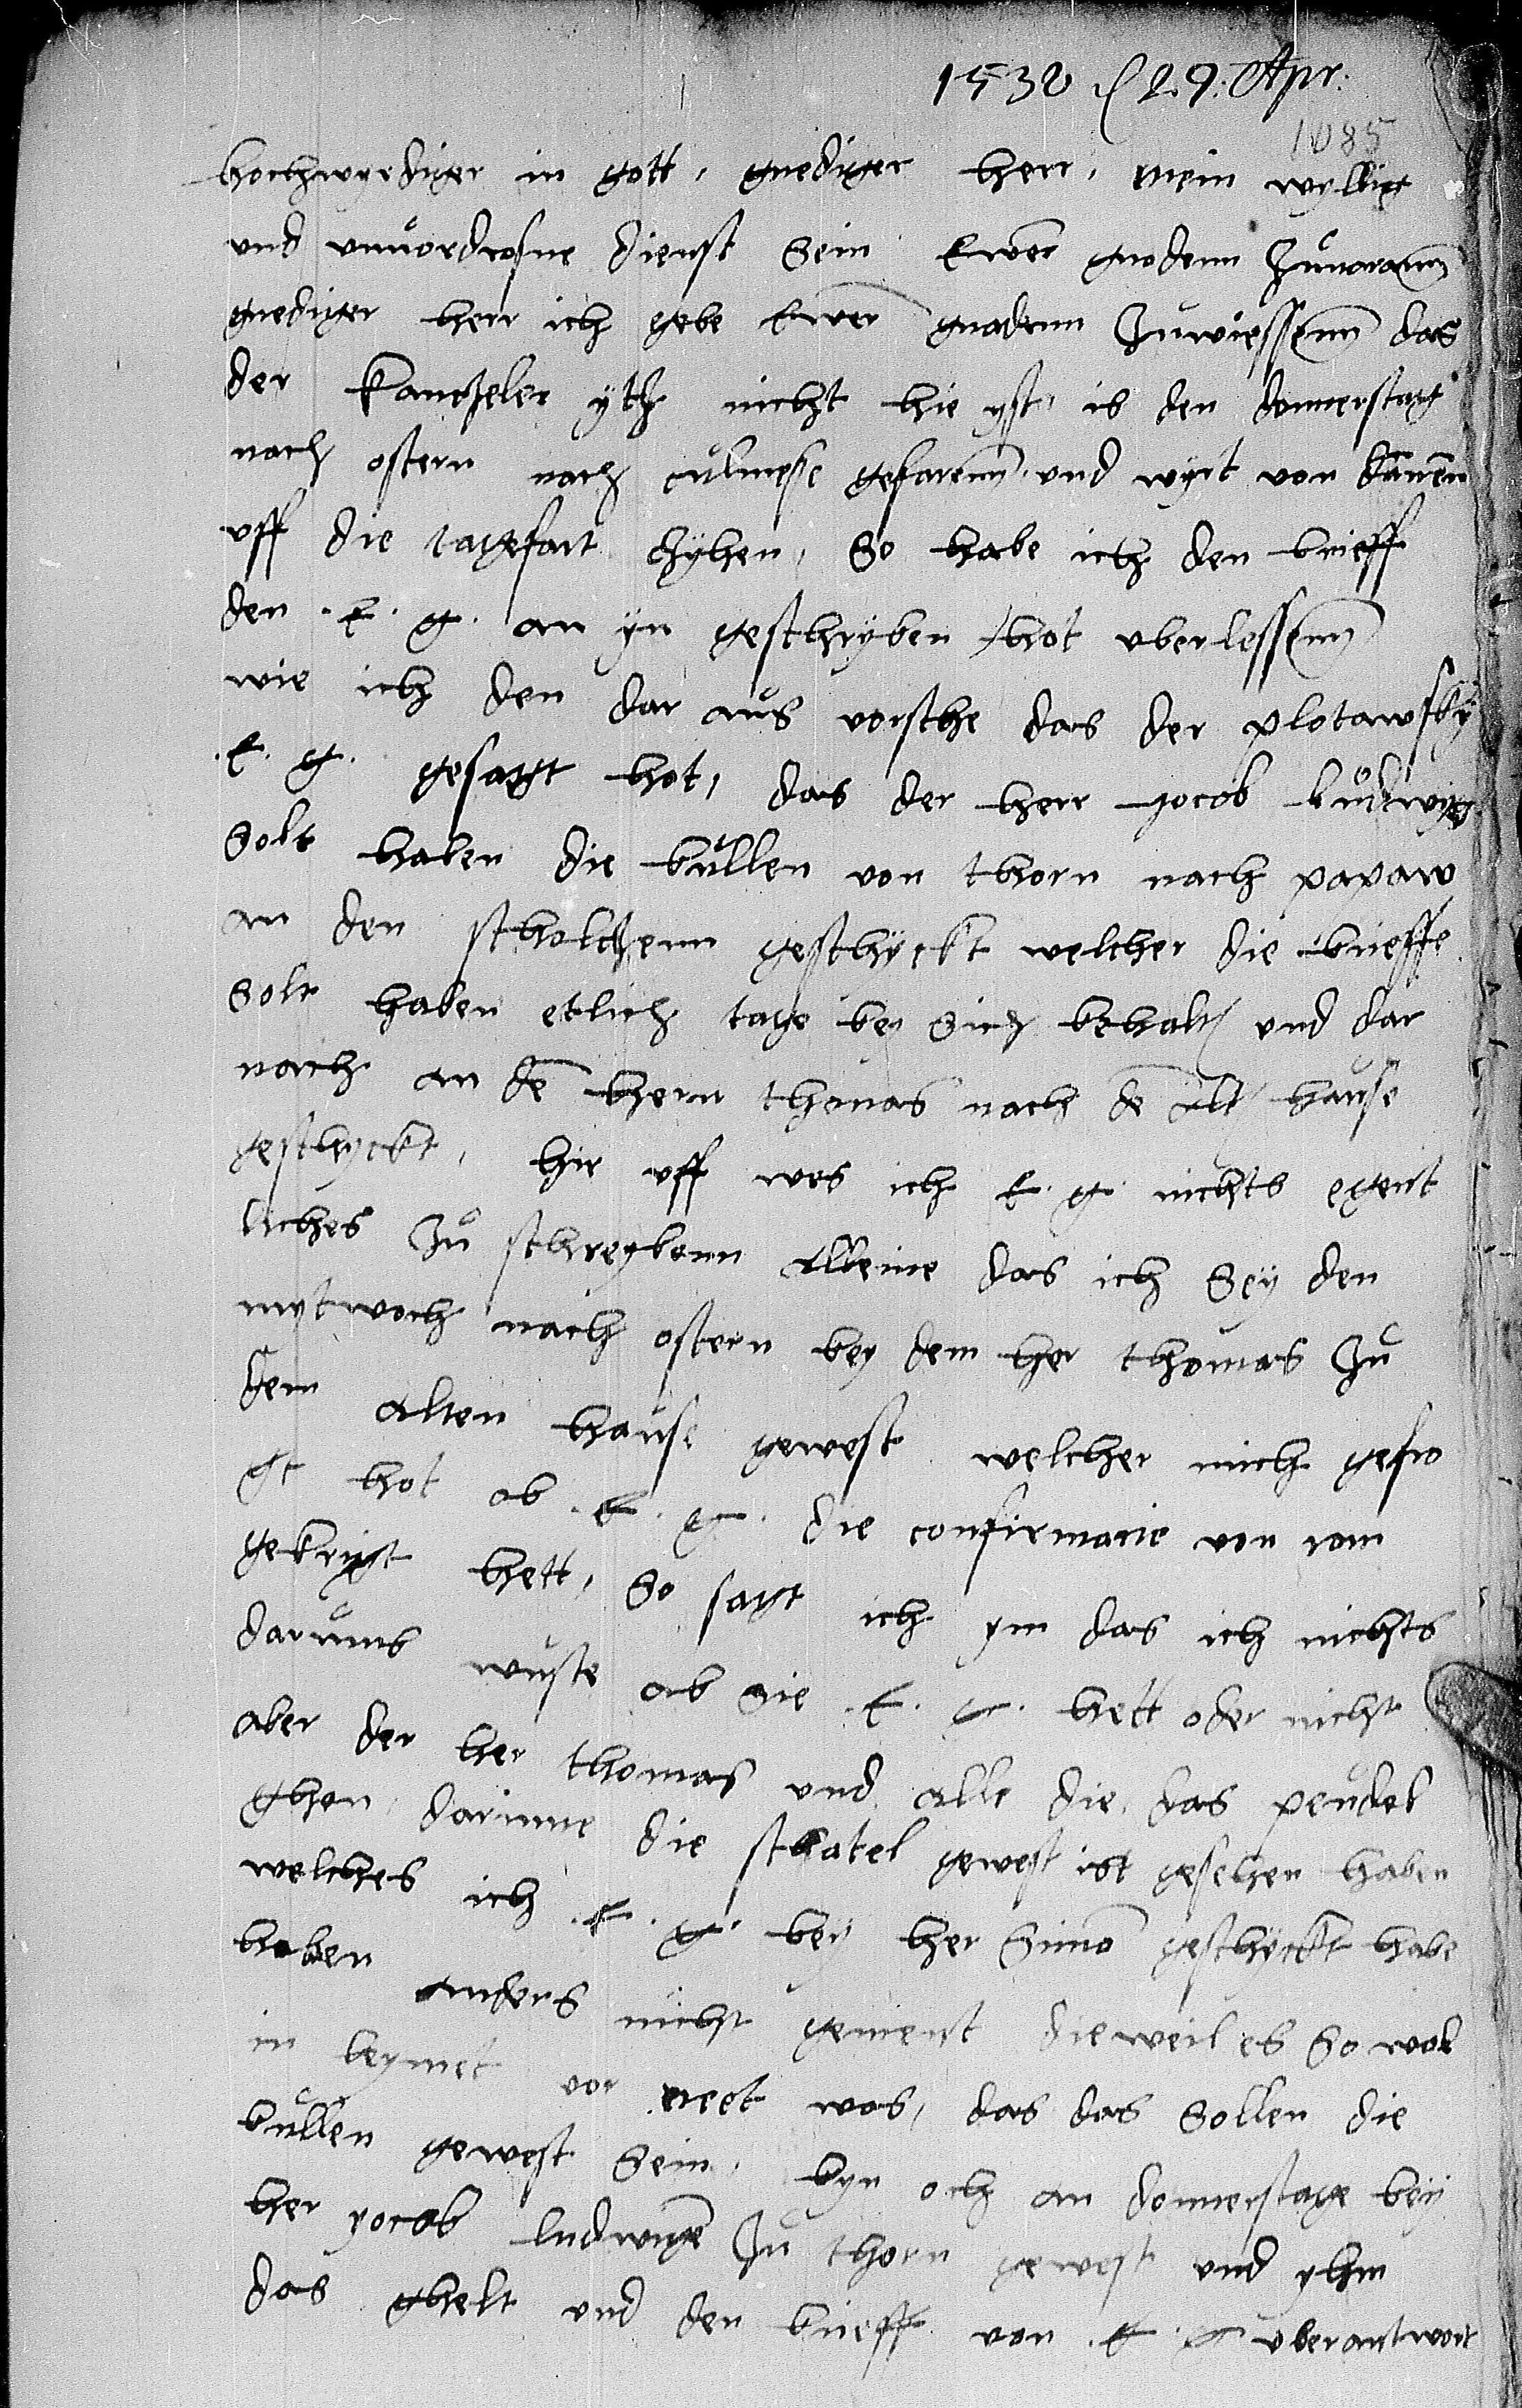 1530 d 29. Apr.
1085
hochwyrdiger in gott, gnediger herr, mein wyllig
vnd vnuordrosne dienst Sein Ewer gnodenn Zuuorann
gnediger herr ich gebe Ewer gnadenn Zuwiessenn das
der kanczeler ytz nicht hie yst, is den donnerstag
nach ostern nach culmese gefarenn, vnd wyrt von dannen
vff die tagefart czyhen, So habe ich den brieff
den .E. g. an yn geschryben hot vberlessenn
wie ich den dar aus vorsthe das der plotawsky
.E. g. gesagt hot, das der herr yocob ludwyg
Solt haben die bullen von thorn nach papaw
an den scholczenn geschyckt welcher die brieffe
Solt haben etlich tage bey Sich behalten vnd dar
nach an den hern thomas nach dem alten hause
geschyckt, hir vff wes ich E. g. nichts egent
liches Zu schreybenn alleine das ich Sey den
mytwoch nach ostern bey dem her thomas Zu
dem alten hause gewest welcher mich gefro
gt hot ob .E. g. die confirmacie von rom
gekrigt hett, So sagt ich ym das ich nichts
darums wuste ob sie .E. g. hett oder nicht
aber der her thomas vnd alle die das peudel
ghen, darinne die schatel gewest ist gesehen haben
welches ich .E. g. bey her Simon geschyckt habe
haben anders nicht gemeint dieweil es So wol
in leymet vor neet was, das das Sollen die
bullen gewest Sein, byn och an donnerstage bey
her yocob ludwige Zu thorn gewest vnd yhm
das ghelt vnd den brieff von .E. g. vberantwort